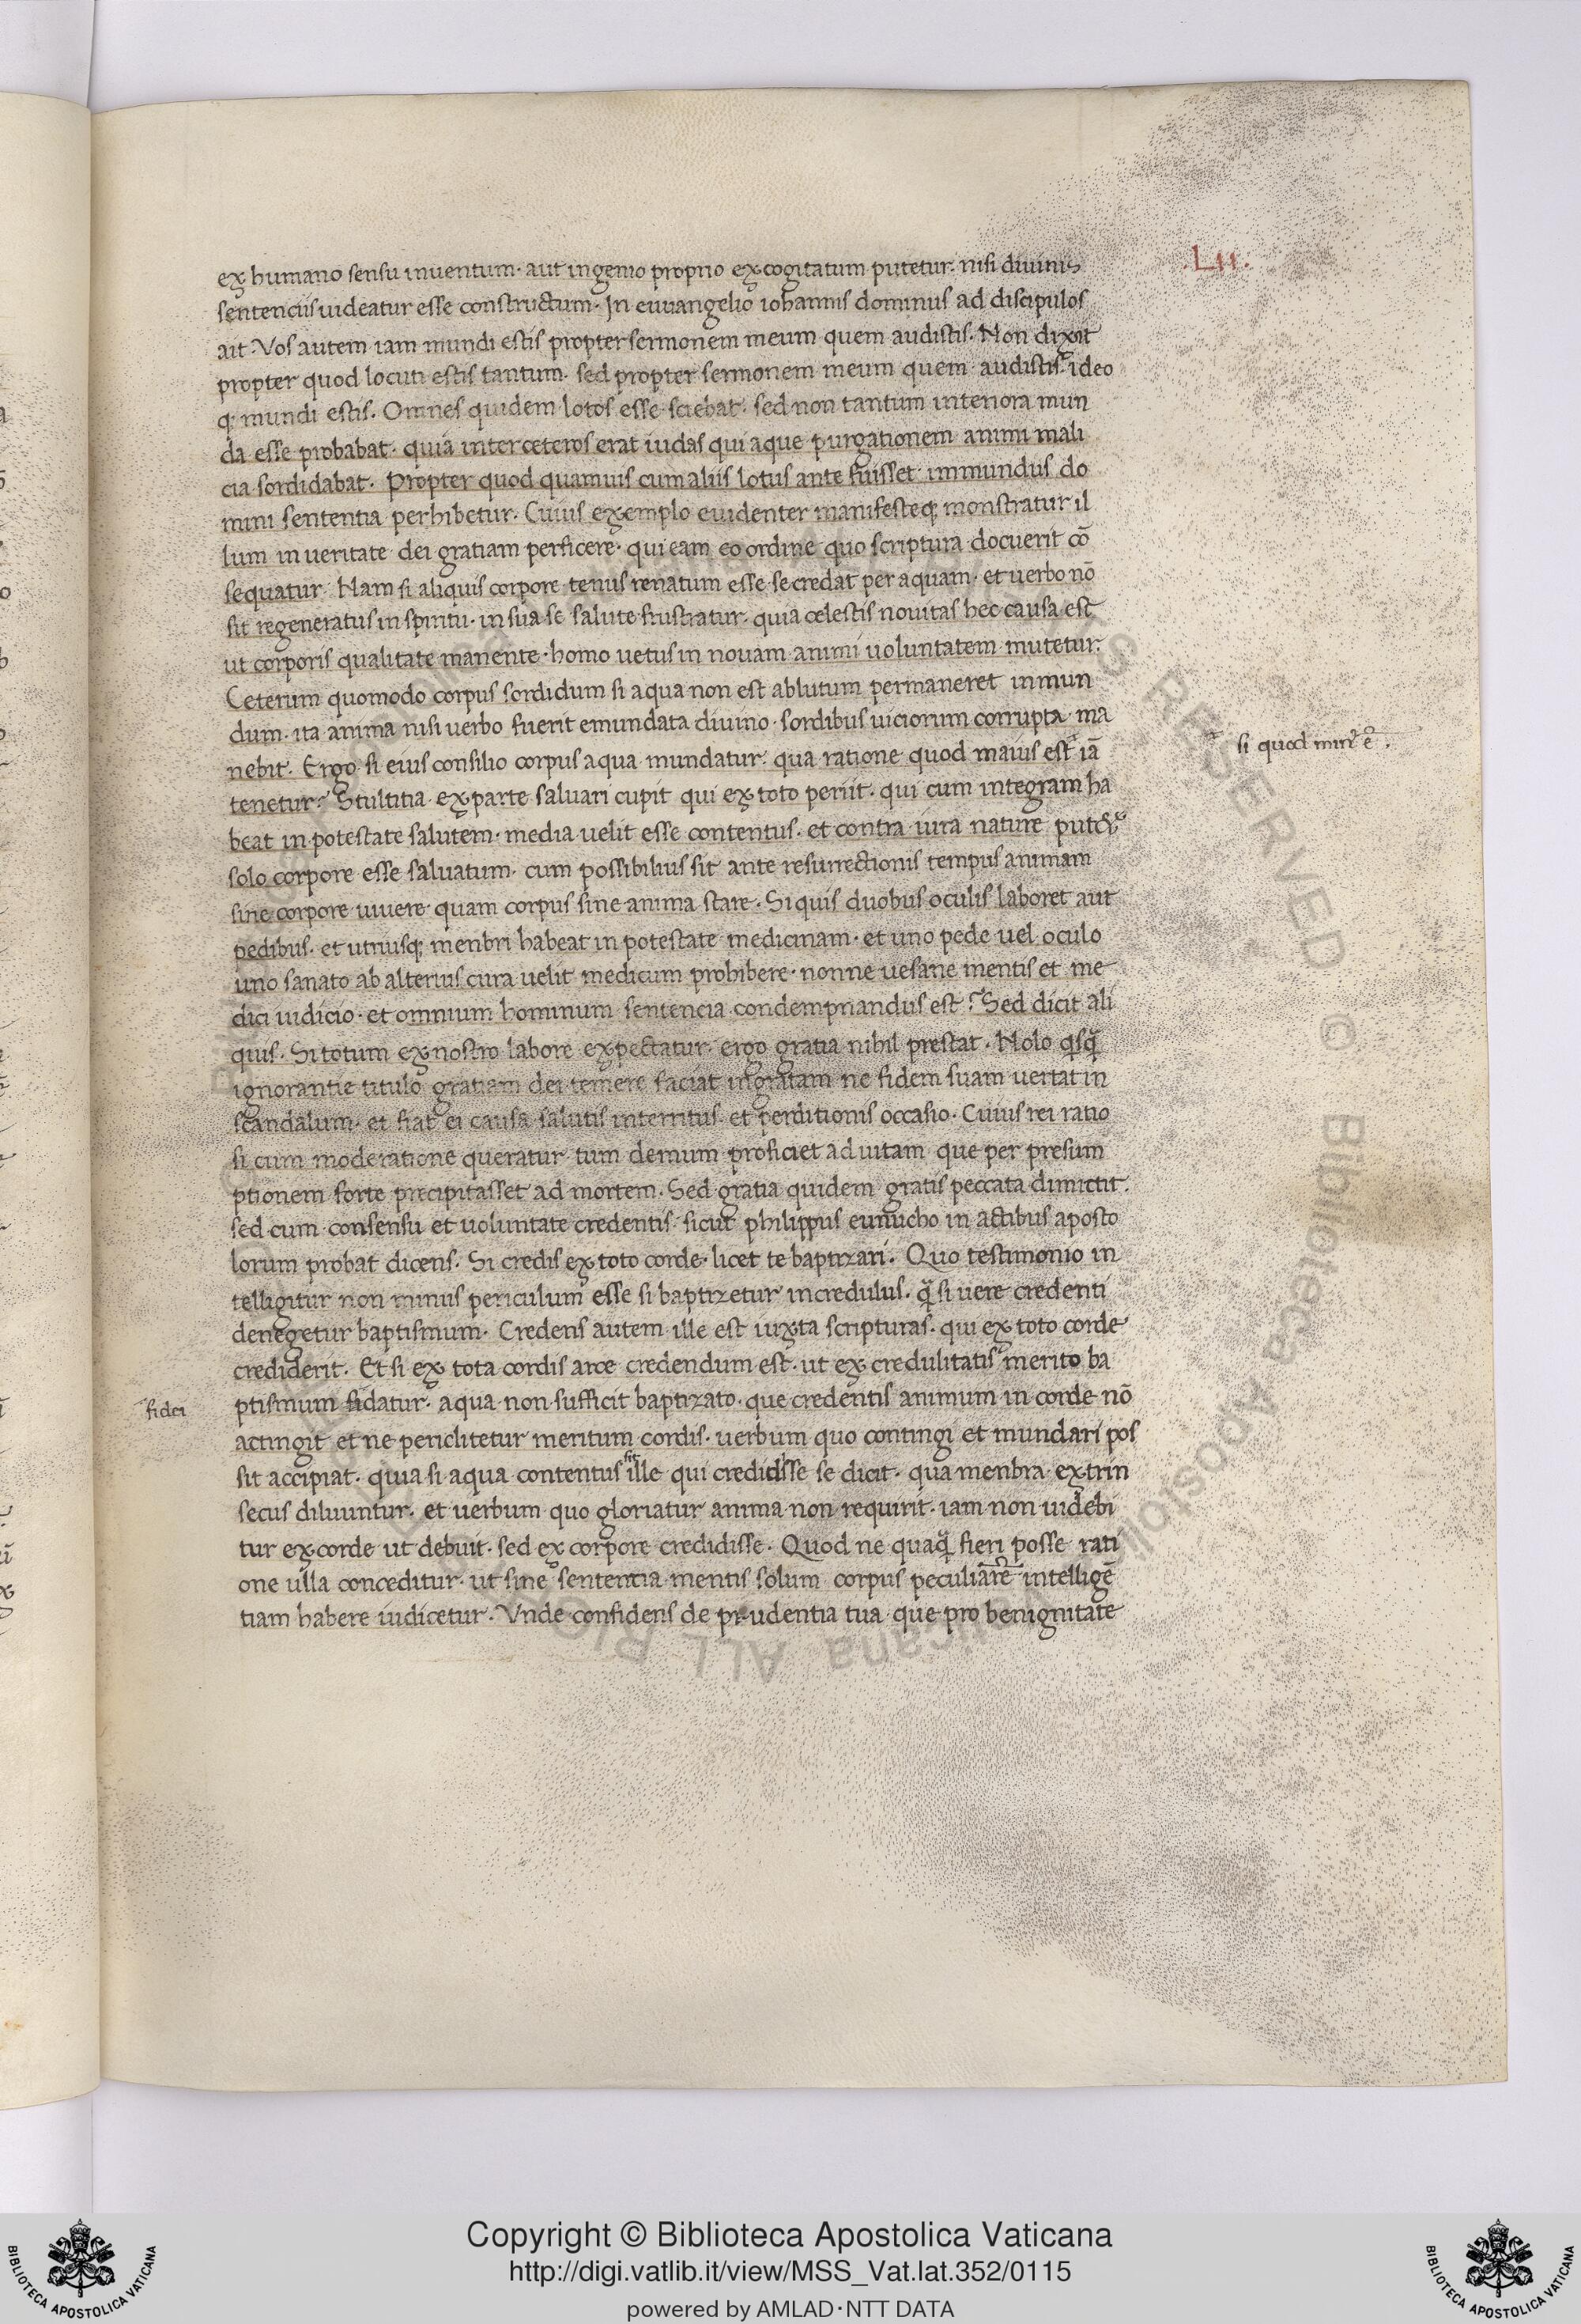 .LII.
ex humano sensu inuentum· aut ingenio proprio excogitatum putetur· nisi diuinis
sentenciis uideatur esse constructum· In euuangelio iohannis dominus ad discipulos
ait· Vos autem iam mundi estis propter sermonem meum quem audistis. Non dixit
propter quod locuti estis tantum· sed propter sermonem meum quem audistis· ideo
q; mundi estis. Omnes quidem lotos esse sciebat· sed non tantum interiora mun
da esse probabat· quia inter ceteros erat iudas qui aque purgationem animi mali
cia sordidabat. Propter quod quamuis cum aliis lotus ante fuisset immundus do
mini sententia perhibetur. Cuius exemplo euidenter manifesteq; monstratur il
lum in ueritate dei gratiam perficere· qui eam eo ordine quo scriptura docuerit cō
sequatur. Nam si aliquis corpore tenus renatum esse se credat per aquam· et uerbo nō
sit regeneratus in spiritu· in sua se salute frustratur· quia celestis nouitas hec causa est
ut corporis qualitate manente· homo uetus in nouam animi uoluntatem mutetur.
Ceterum quomodo corpus sordidum si aqua non est ablutum permaneret inmun
dum· ita anima nisi uerbo fuerit emundata diuino· sordibus uiciorum corrupta ma
si quod min᷒ ē.
nebit. Ergo si eius consilio corpus aqua mundatur· qua ratione quod maius est iā
tenetur? Stultitia ex parte saluari cupit qui ex toto periit· qui cum integram ha
beat in potestate salutem· media uelit esse contentus· et contra iura nature put&
solo corpore esse saluatum· cum possibilius sit ante resurrectionis tempus animam
sine corpore uiuere quam corpus sine anima stare. Si quis duobus oculis laboret aut
pedibus· et utriusq; menbri habeat in potestate medicinam· et uno pede uel oculo
uno sanato ab alterius cura uelit medicum prohibere· nonne uesane mentis et me
dici iudicio· et omnium hominum sentencia condempnandus est? Sed dicit ali
quis. Si totum ex nostro labore expectatur· ergo gratia nihil prestat. Nolo qisq̄
ignorantie titulo gratiam dei temere faciat ingratam ne fidem suam uertat in
scandalum· et fiat ei causa salutis interritus· et perditionis occasio. Cuius rei ratio
si cum moderatione queratur tum demum proficiet ad uitam que per presum
ptionem forte precipitasset ad mortem. Sed gratia quidem gratis peccata dimittit.
sed cum consensu et uoluntate credentis· sicut philippus eunucho in actibus aposto
lorum probat dicens. Si credis ex toto corde· licet te baptizari. Quo testimonio in
telligitur non minus periculum esse si baptizetur incredulus· q̄ si uere credenti
denegetur baptismum. Credens autem ille est iuxta scripturas· qui ex toto corde
crediderit. Et si ex tota cordis arce credendum est· ut ex credulitatis merito ba
fidei
ptismum fidatur· aqua non sufficit baptizato· que credentis animum in corde nō
actingit et ne periclitetur meritum cordis· uerbum quo contingi et mundari pos
sit accipiat· quia si aqua contentus sit ille qui credidisse se dicit· qua menbra extrin
secus diluuntur· et uerbum quo gloriatur anima non requirit· iam non uidebi
tur ex corde ut debuit· sed ex corpore credidisse. Quod ne quaq̄ fieri posse rati
one ulla conceditur· ut sine sententia mentis solum corpus peculiarē intelligē
tiam habere iudicetur. Vnde confidens de prudentia tua que pro benignitate
RIGHTS RESERVED © Biblioteca Apostolica Vaticana ALL
Copyright © Biblioteca Apostolica Vaticana
http://digi.vatlib.it/view/MSS_Vat.lat.352/0115
powered by AMLAD·NTT DATA
BIBLIOTECA APOSTOLICA VATICANA
BIBLIOTECA APOSTOLICA VATICANA